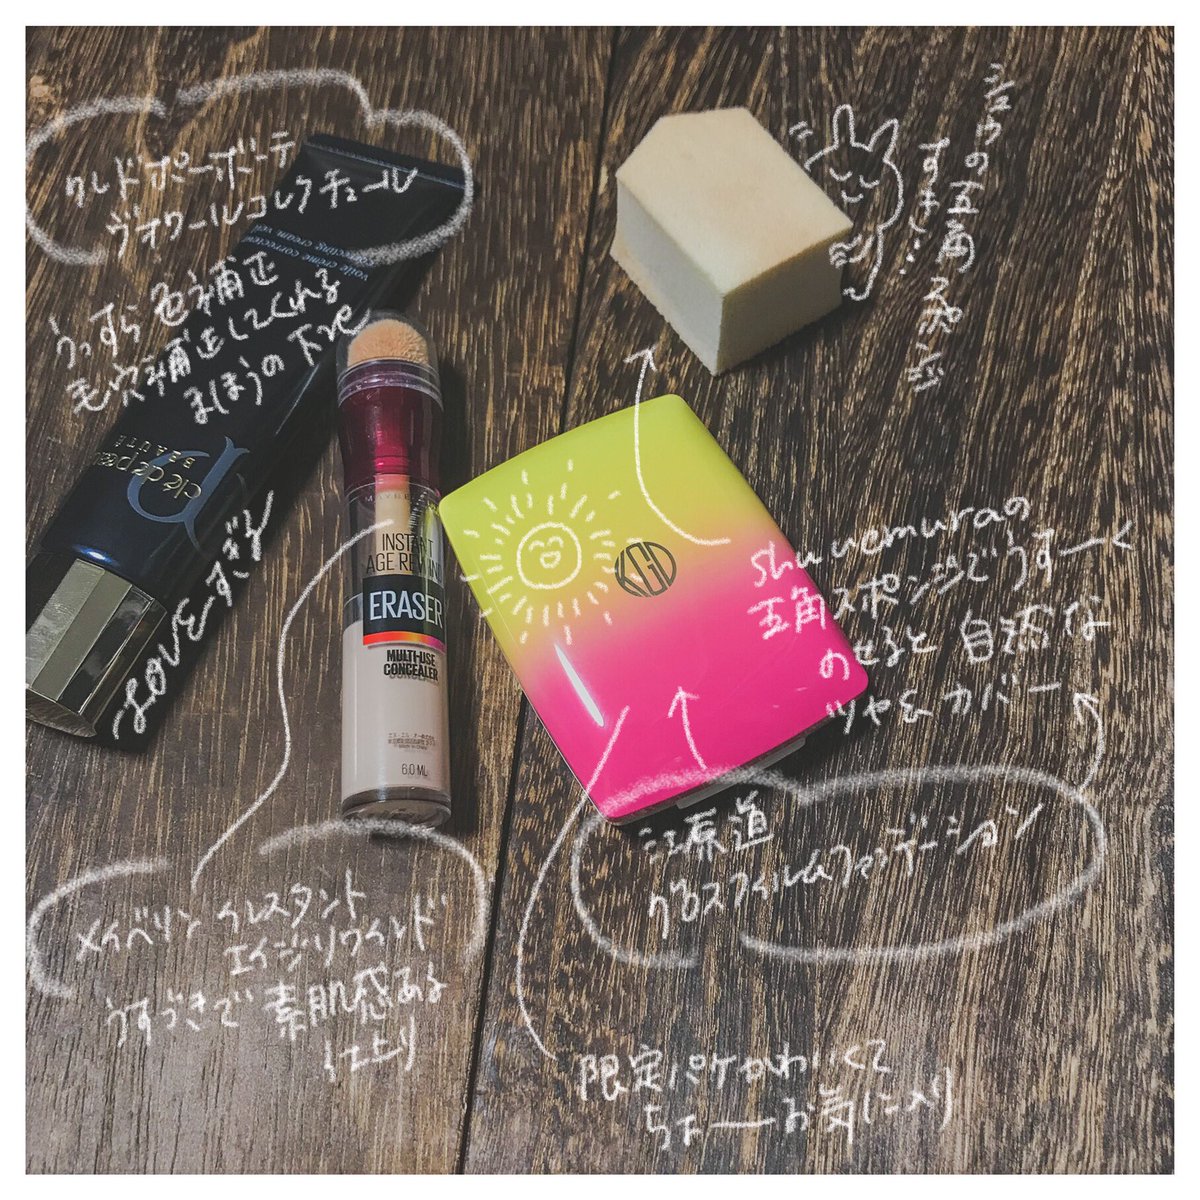 クレドポーボーテ
ヴォワールコレクチュール
うっすら色補正
毛穴補正してくれる
まほうの下地
LOVEすぎる
voile crème correcteur
correcting cream veil
clé de peau
BEAUTÉ
INSTANT
AGE REWIND
ERASER
MULTI-USE
CONCEALER
6.0 ML
KGD
シュウの五角スポンジ
すき…
shu uemuraの
五角スポンジでうすーく
のせると自然な
ツヤ&カバー
江原道
グロスフィルムファンデーション
メイベリン インスタント
エイジリワインド
うすづきで素肌感ある
仕上り
限定パケかわいくて
ちょーお気に入り